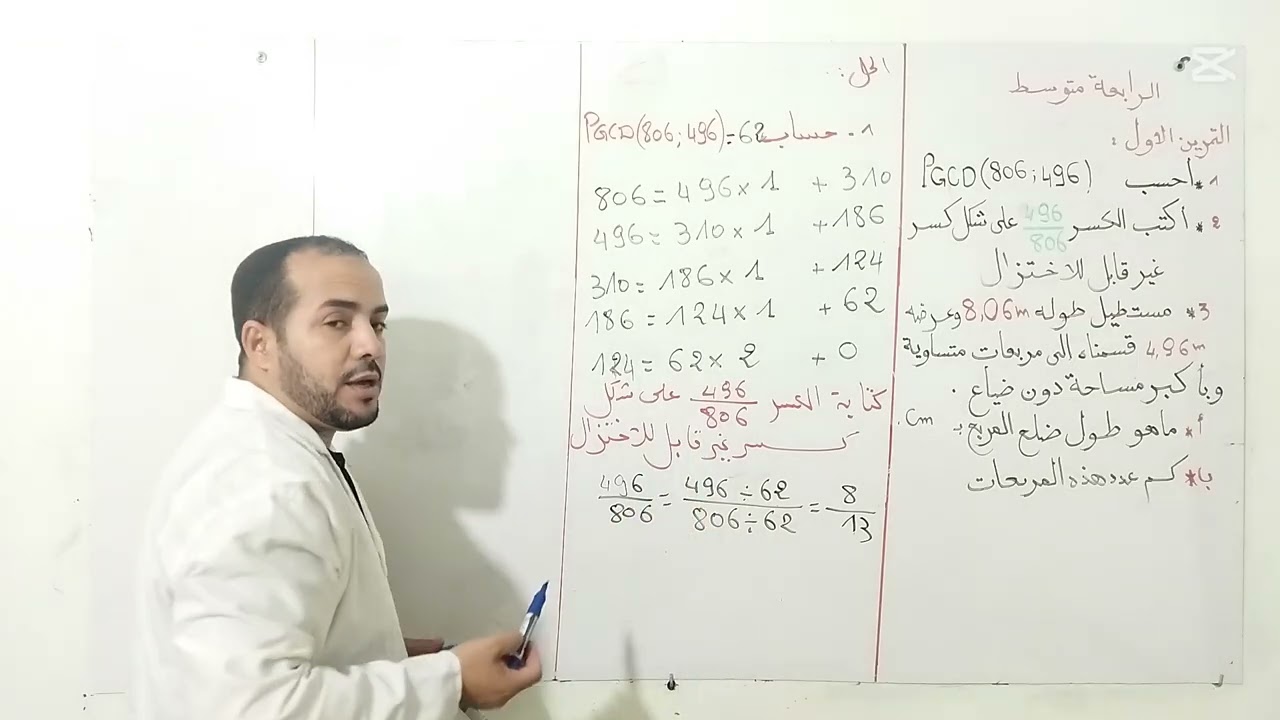 الرابعة متوسط
التمرين الاول :
1* أحسب PGCD(806 ; 496)
2* أكتب الكسر 496/806 على شكل كسر
غير قابل للاختزال
3* مستطيل طوله 8,06m وعرضه
4,96m قسمناه الى مربعات متساوية
وبأكبر مساحة دون ضياع .
أ* ماهو طول ضلع المربع بـ Cm .
ب* كم عدد هذه المربعات
الحل :
1- حساب PGCD(806 ; 496) = 62
806 = 496 × 1 + 310
496 = 310 × 1 + 186
310 = 186 × 1 + 124
186 = 124 × 1 + 62
124 = 62 × 2 + 0
كتابة الكسر 496/806 على شكل
كسر غير قابل للاختزال
496/806 = 496 ÷ 62/806 ÷ 62 = 8/13